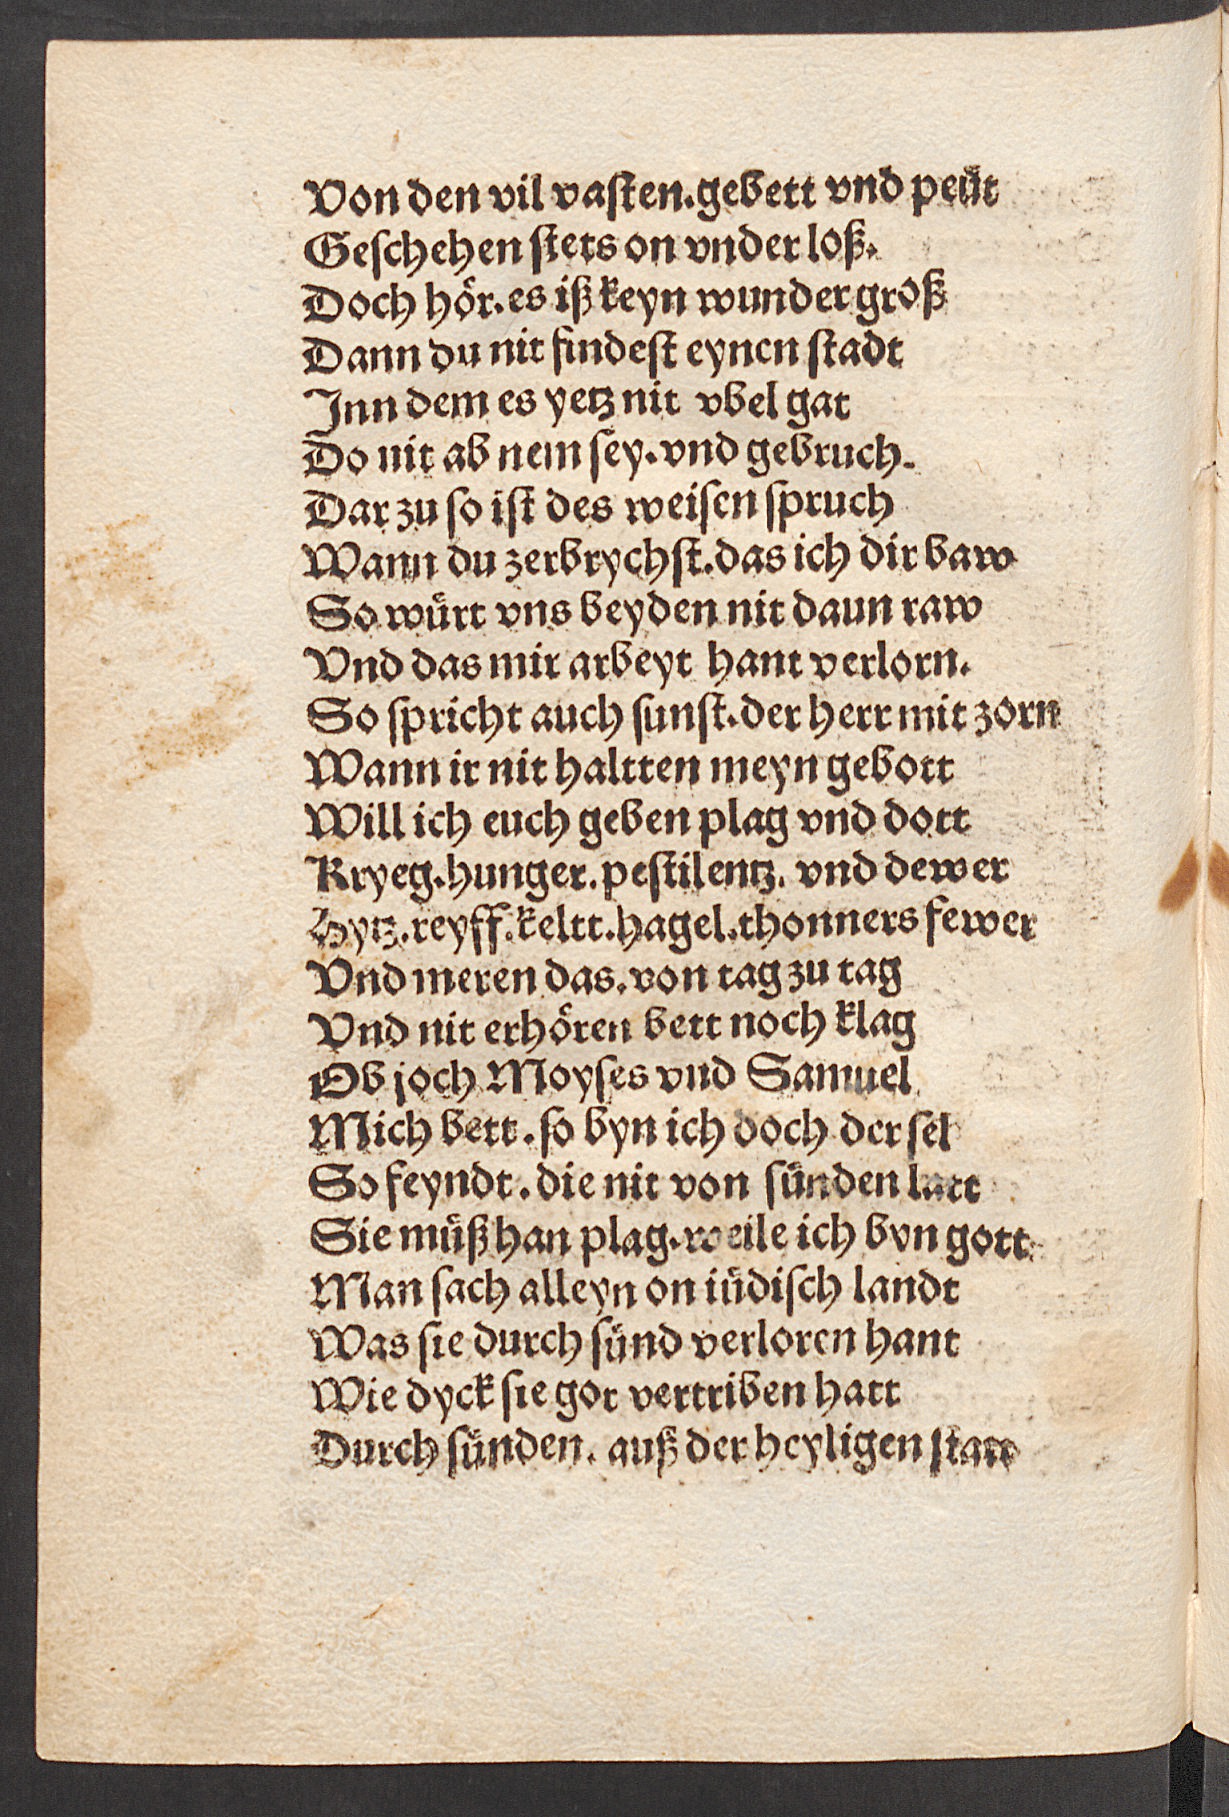 Von den vil vasten.gebett vnd peüt
Geschehen stets on vnder loß.
Doch hör.es iß keyn wunder groß
Dann du nit findest eynen stadt
Jnn dem es yetz nit vbel gat
Do nit ab nem sey.vnd gebruch.
Dar zu so ist des weisen spruch
Wann du zerbrychst.das ich dir baw
So würt vns beyden nit dann raw
Vnd das mir arbeyt hant verlorn.
So spricht auch sunst.der herr mit zorn
Wann ir nit haltten meyn gebott
Will ich euch geben plag vnd dott
Kryeg.hunger.pestilentz. vnd dewer
Hytz.reyff.keltt.hagel.thonners fewer
Vnd meren das.von tag zu tag
Vnd nit erhören bett noch klag
Ob joch Moyses vnd Samuel
Mich bett.so byn ich doch der sel
So feyndt.die nit von sünden latt
Sie müß han plag.weile ich byn gott
Man sach alleyn on iüdisch landt
Was sie durch sünd verloren hant
Wie dyck sie got vertriben hatt
Durch sünden. auß der heyligen statt